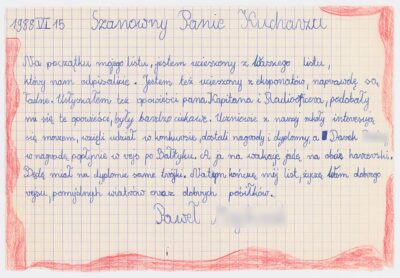 1988 VI 15 Szanowny Panie Kucharzu
Na początku mojego listu, jestem ucieszony z Waszego listu,
który nam odpisaliście. Jestem też ucieszony z eksponatów, naprawdę są
ładne. Usłyszałem też opowieści pana Kapitana i Radiooficera, podobały
mi się te opowieści, były bardzo ciekawe. Uczniowie z naszej szkoły interesują
się morzem, wzięli udział w konkursie, dostali nagrody i dyplomy, a Darek
w nagrodę, popłynie w rejs po Bałtyku. A ja na wakacje jadę na obóz harcerski.
Będę miał na dyplomie same trójki. Na tem kończę mój list, życzę Wam dobrego
rejsu, pomyślnych wiatrów oraz dobrych posiłków.
Paweł